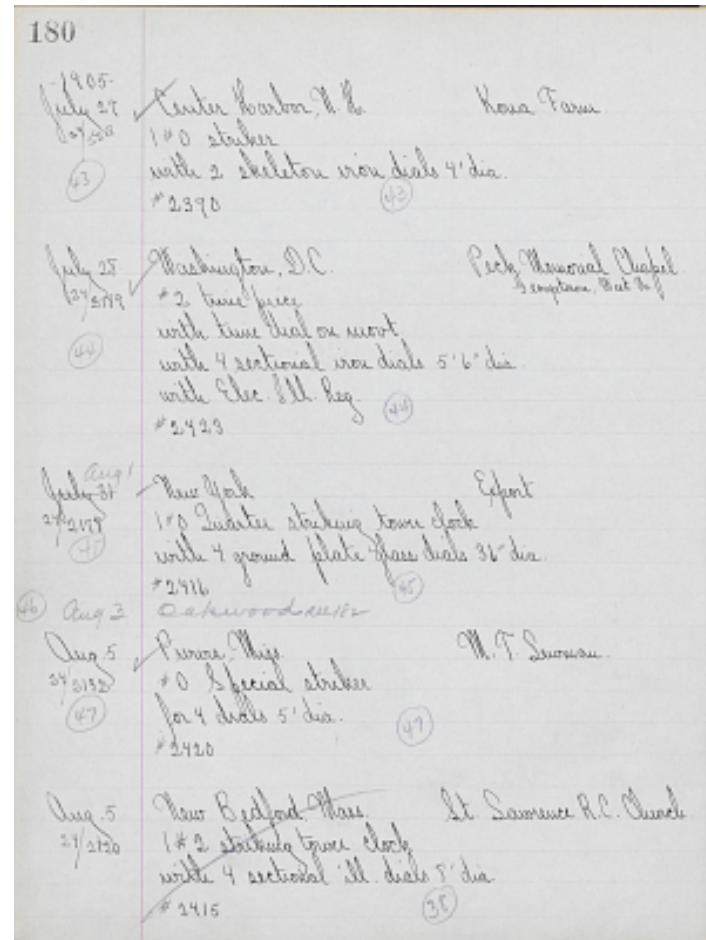 180
-1905-
July 27 Center Harbor, N.H. Kona Farm
1 #0 striker
with 2 skeleton iron dials 4' dia.
43 43
#2390
July 28 Washington, D.C. Peck Memorial Chapel
#2 time piece
with time dial on movt
44 with 4 sectional iron dials 5'6" dia.
with Elec. Ill. Reg. 44
#2423
Aug 1
July 31 New York Export
1 #0 Quarter striking tower clock
45 with 4 ground plate glass dials 36" dia.
#2416 45
46 Aug 3 Oakwood
Aug. 5 Miss.
#0 Special striker
47 for 4 dials 5' dia. 47
#2420
Aug. 5 New Bedford, Mass. St. Lawrence R.C. Church
24/2120 1 #2 striking tower clock
with 4 sectional ill. dials 8' dia
#2415 38